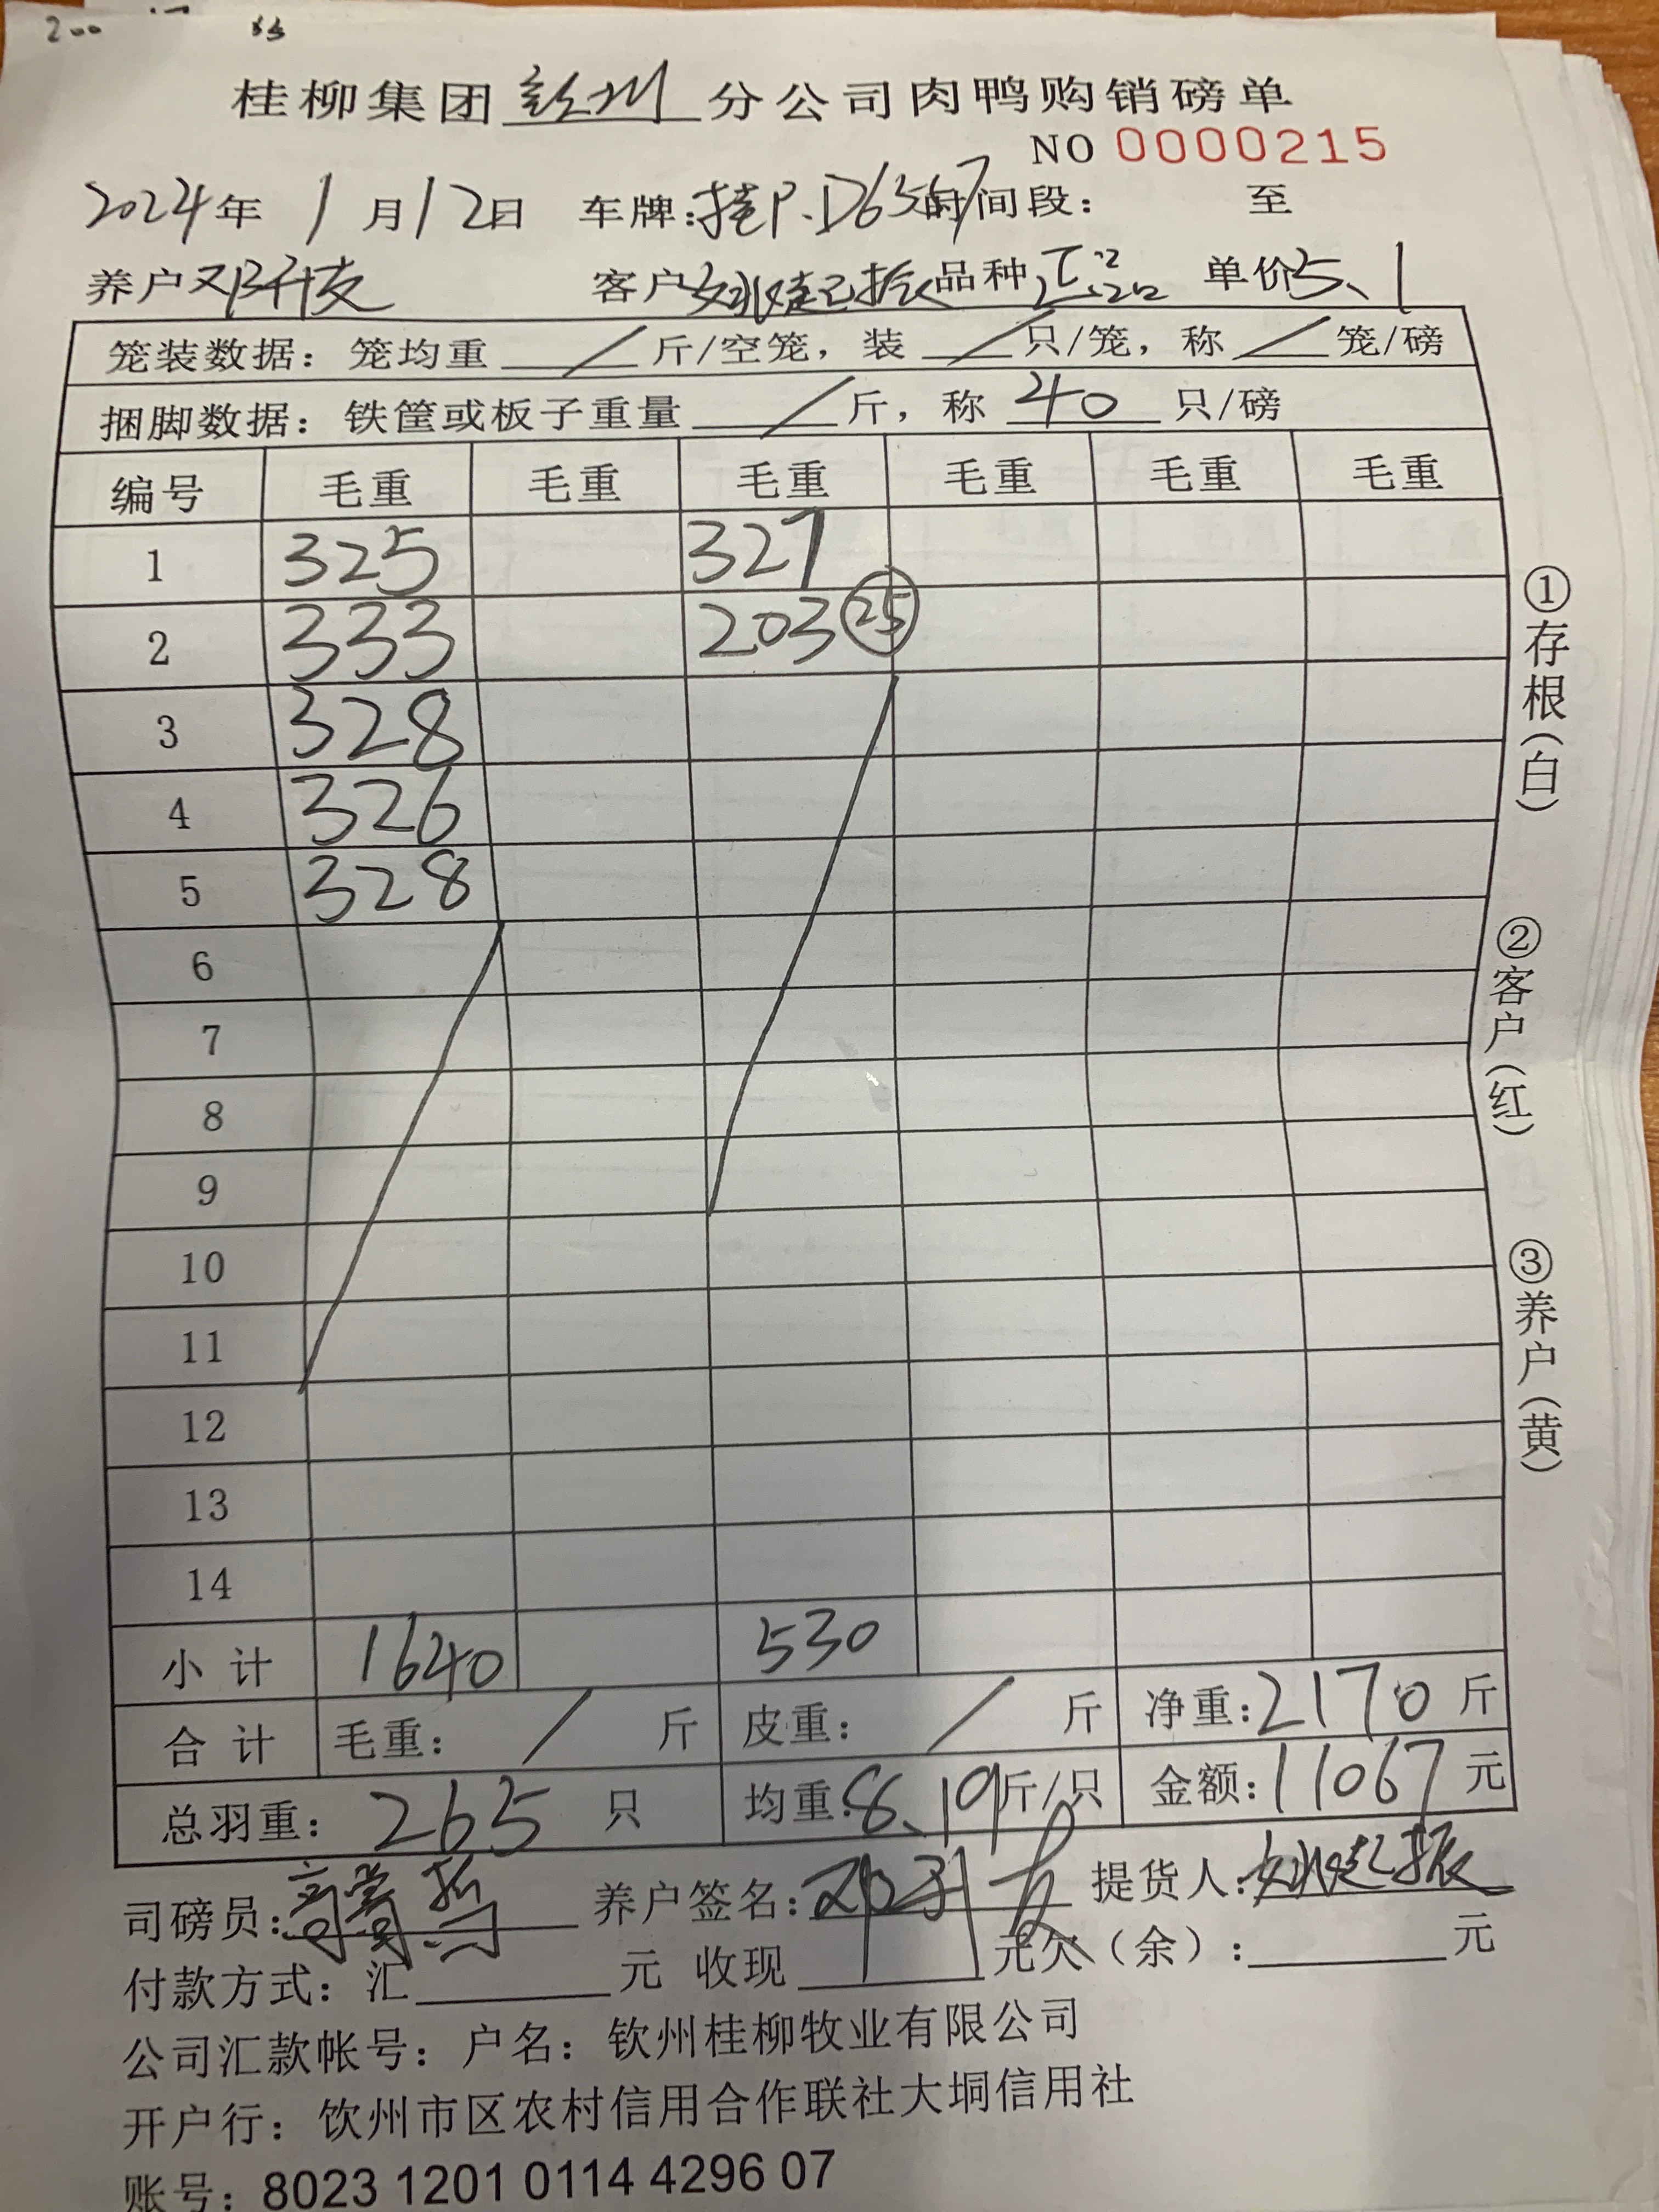 200
桂柳集团钦州分公司肉鸭购销磅单
NO 0000215
2024年1月12日 车牌:桂P.D6367时间段: 至
养户邓开支 客户 品种正品 单价5.1
笼装数据: 笼均重 / 斤/空笼, 装 / 只/笼, 称 / 笼/磅
捆脚数据: 铁筐或板子重量 / 斤, 称 40 只/磅
编号 毛重 毛重 毛重 毛重 毛重 毛重
1 325 327
2 333 203 25
3 328
4 326
5 328
6
7
8
9
10
11
12
13
14
小计 1640 530
合计 毛重: / 斤 皮重: / 斤 净重:2170斤
总羽重: 265 只 均重:8.19斤/只 金额:11067元
司磅员: 养户签名: 提货人:
付款方式: 汇 元 收现 元欠(余): 元
公司汇款帐号: 户名: 钦州桂柳牧业有限公司
开户行: 钦州市区农村信用合作联社大垌信用社
账号: 8023 1201 0114 4296 07
①存根(白)
②客户(红)
③养户(黄)